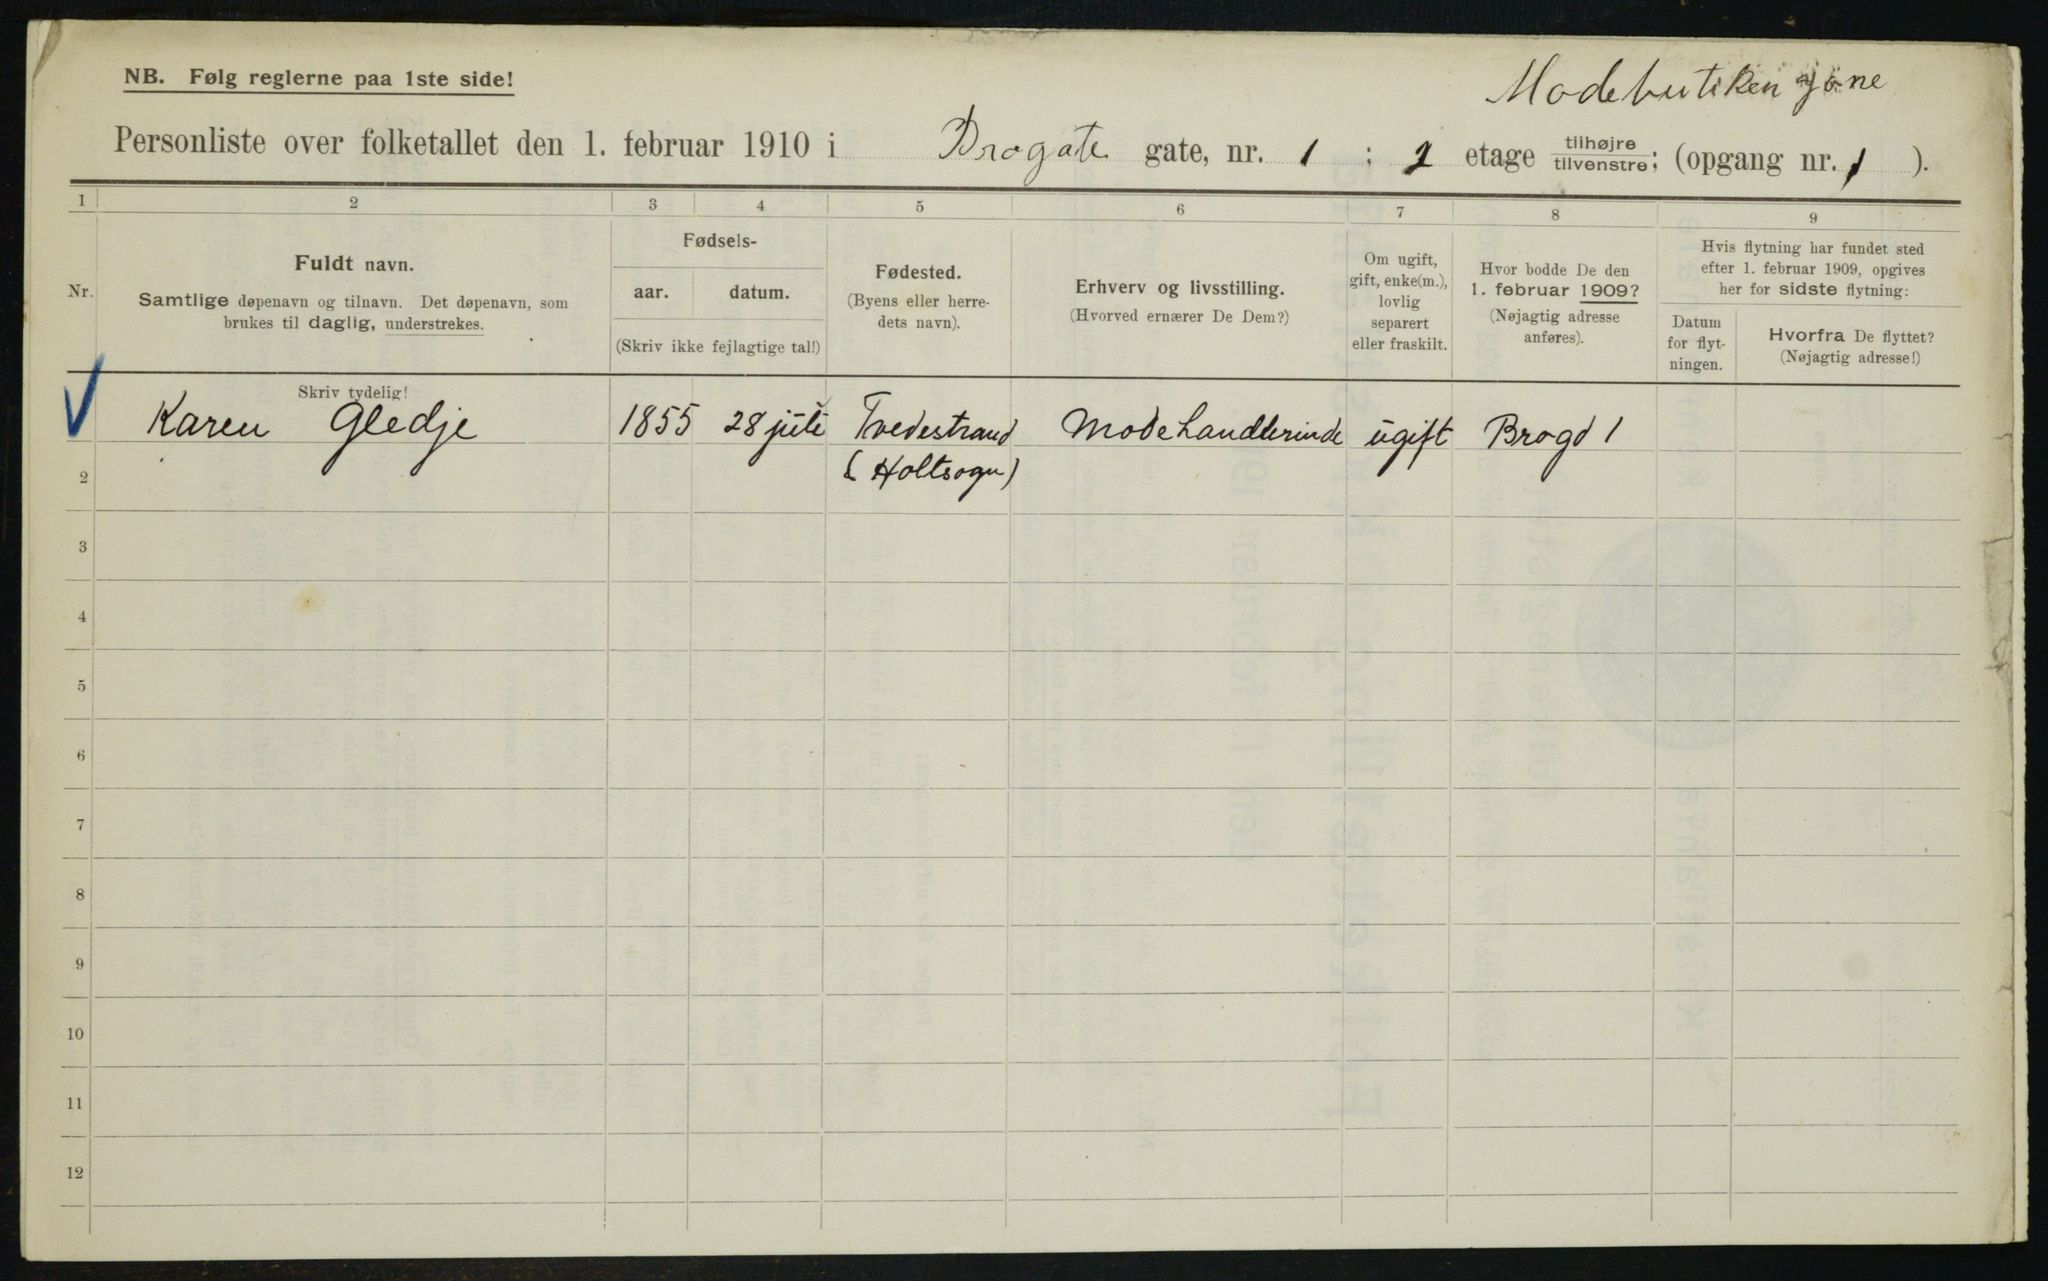 Modebutiken
NB. Følg reglerne paa 1ste side!
Personliste over folketallet den 1. februar 1910 i Brogate gate, nr. 1 ; 2 etage tilhøjre tilvenstre; (opgang nr. 1 ).
1 2 3 4 5 6 7 8 9
Nr.
Fuldt navn.
Samtlige døpenavn og tilnavn. Det døpenavn, som
brukes til daglig, understrekes.
Skriv tydelig!
Fødsels-
aar. datum.
(Skriv ikke fejlagtige tal!)
Fødested.
(Byens eller herre-
dets navn).
Erhverv og livsstilling.
(Hvorved ernærer De Dem?)
Om ugift,
gift, enke(m.),
lovlig
separert
eller fraskilt.
Hvor bodde De den
1. februar 1909?
(Nøjagtig adresse
anføres).
Hvis flytning har fundet sted
efter 1. februar 1909, opgives
her for sidste flytning:
Datum
for flyt-
ningen.
Hvorfra De flyttet?
(Nøjagtig adresse!)
Karen Gledje 1855 28 juli Tvedestrand Modehandlerinde ugift Brogd 1
(Holtsogn)
2
3
4
5
6
7
8
9
10
11
12